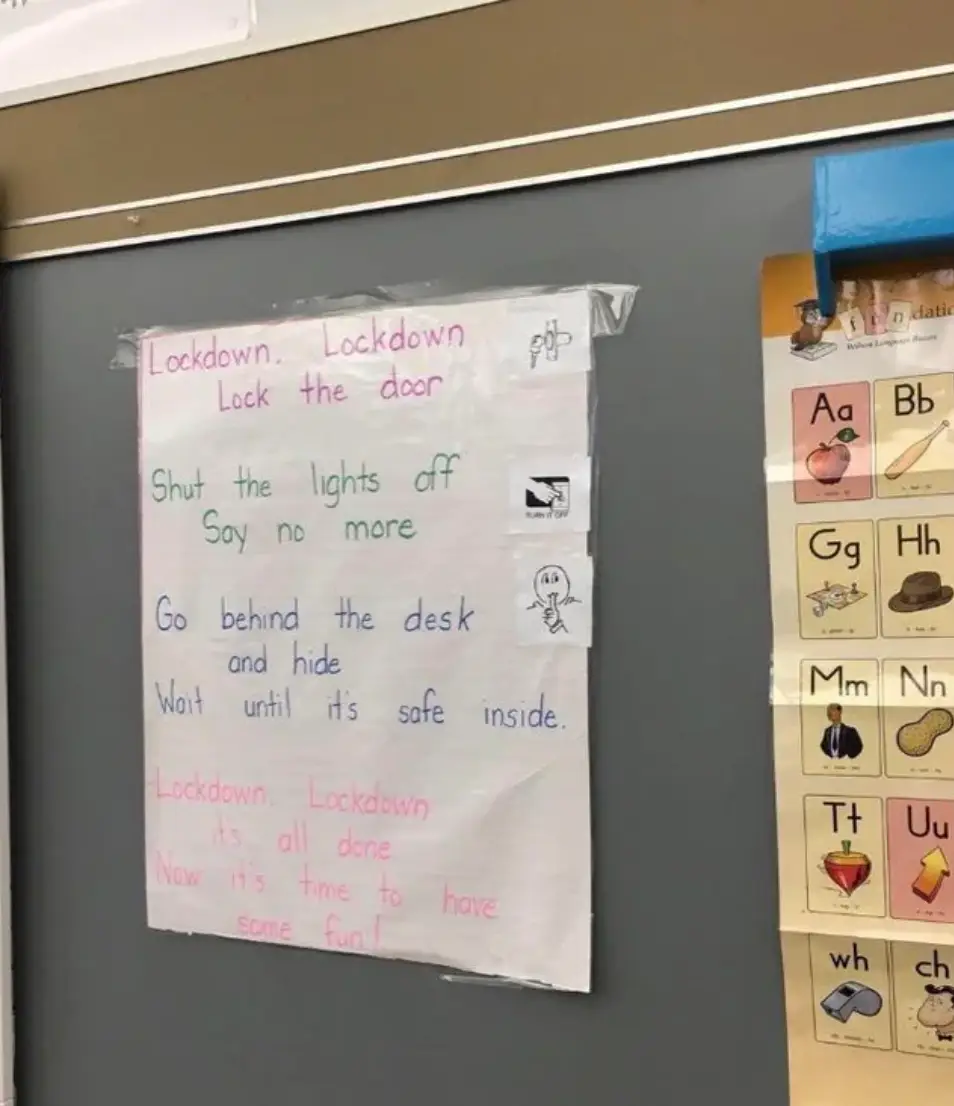 Lockdown. Lockdown
Lock the door
Shut the lights off
Say no more
TURN IT OFF
Go behind the desk
and hide
Wait until it's safe inside.
Lockdown. Lockdown
it's all done
Now it's time to have
some fun!
Wilson Language Basics
Aa Bb
Gg Hh
Mm Nn
Tt Uu
wh ch